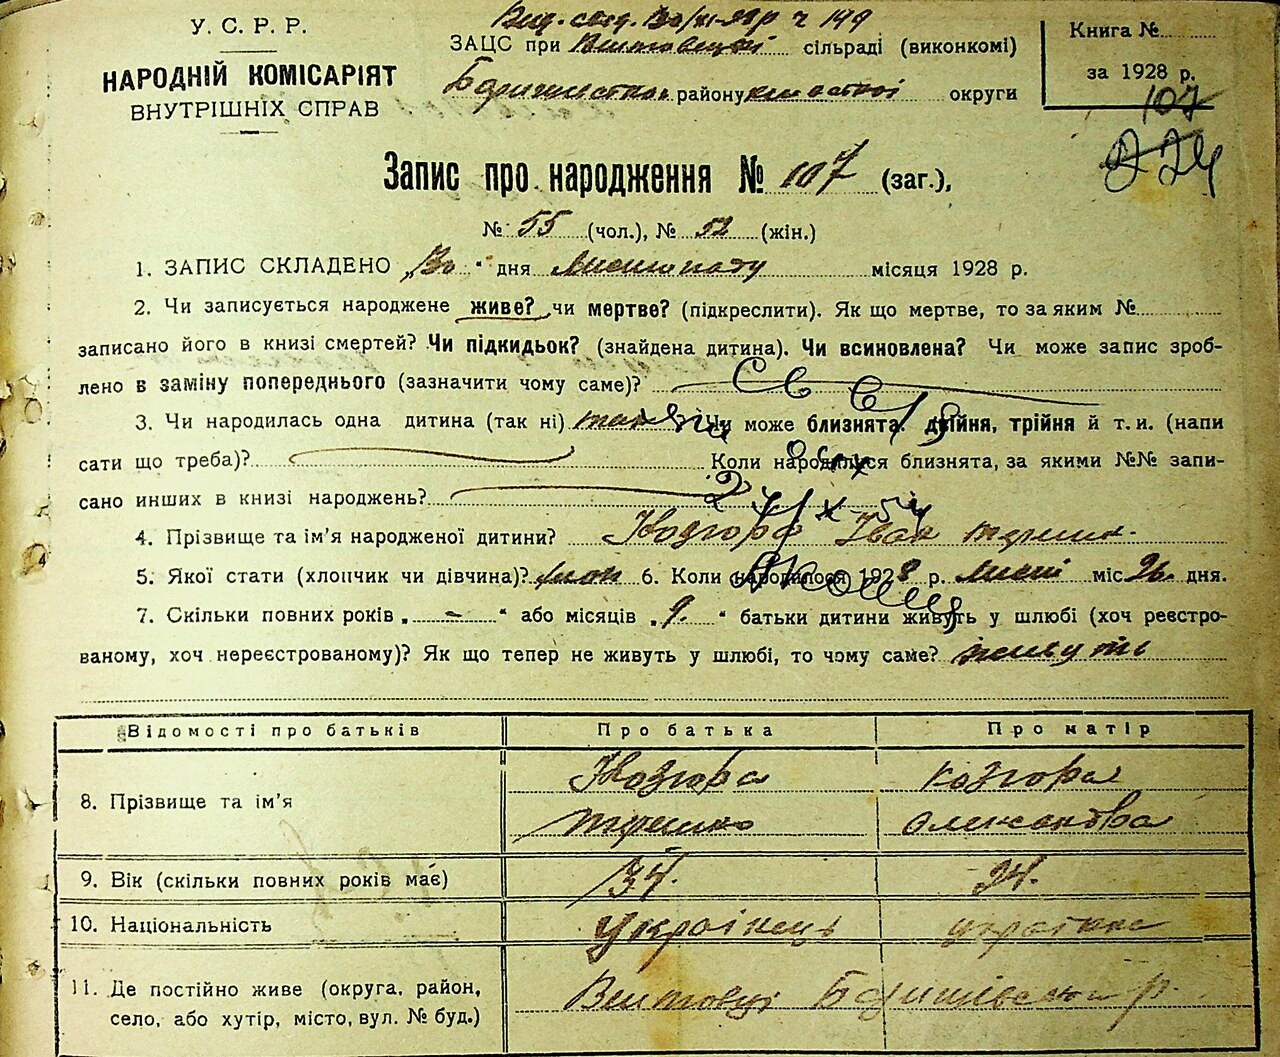 У. С. Р. Р.
НАРОДНІЙ КОМІСАРІЯТ
ВНУТРІШНІХ СПРАВ
ч 149
ЗАЦС при сільраді (виконкомі)
району округи
Книга №
за 1928 р.
107
224
Запис про народження № 107 (заг.),
№ 55 (чол.), № 52 (жін.)
1. ЗАПИС СКЛАДЕНО „30“ дня Листопаду місяця 1928 р.
2. Чи записується народжене живе? чи мертве? (підкреслити). Як що мертве, то за яким №
записано його в книзі смертей? Чи підкидьок? (знайдена дитина). Чи всиновлена? Чи може запис зроб-
лено в заміну попереднього (зазначити чому саме)?
3. Чи народилась одна дитина (так ні) так Чи може близнята. двійня, трійня й т. и. (напи
сати що треба)? Коли народилися близнята, за якими №№ запи-
сано инших в книзі народжень?
4. Прізвище та ім'я народженої дитини? Козгора Іван
5. Якої стати (хлопчик чи дівчина)? 6. Коли народилося 1928 р. міс. 26. дня.
7. Скільки повних років „ – “ або місяців „ 9. “ батьки дитини живуть у шлюбі (хоч реєстро-
ваному, хоч нереєстрованому)? Як що тепер не живуть у шлюбі, то чому саме? живуть
Відомості про батьків Про батька Про матір
8. Прізвище та ім'я Козгора Козгора
9. Вік (скільки повних років має) 34. 24.
10. Національність Українець українка
11. Де постійно живе (округа, район,
село, або хутір, місто, вул. № буд.) р.